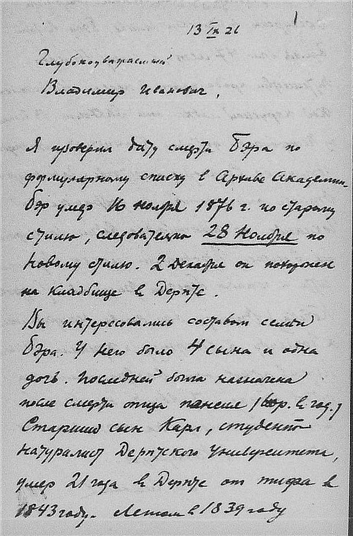 1
13 IX 26
Глубокоуважаемый
Владимир Иванович,
Я проверил дату смерти Бэра по
формулярному списку в Архиве Академии
Бэр умер 16 ноября 1876 г. по старому
стилю, следовательно 28 ноября по
новому стилю. 2 декабря он похоронен
на кладбище в Дерпте.
Вы интересовались составом семьи
Бэра. У него было 4 сына и одна
дочь. Последней была назначена
после смерти отца пенсия ( р. в год.)
Старший сын Карл, студент
натуралист Дерптского Университета,
умер 21 года в Дерпте от тифа в
1843 году. Летом в 1839 году